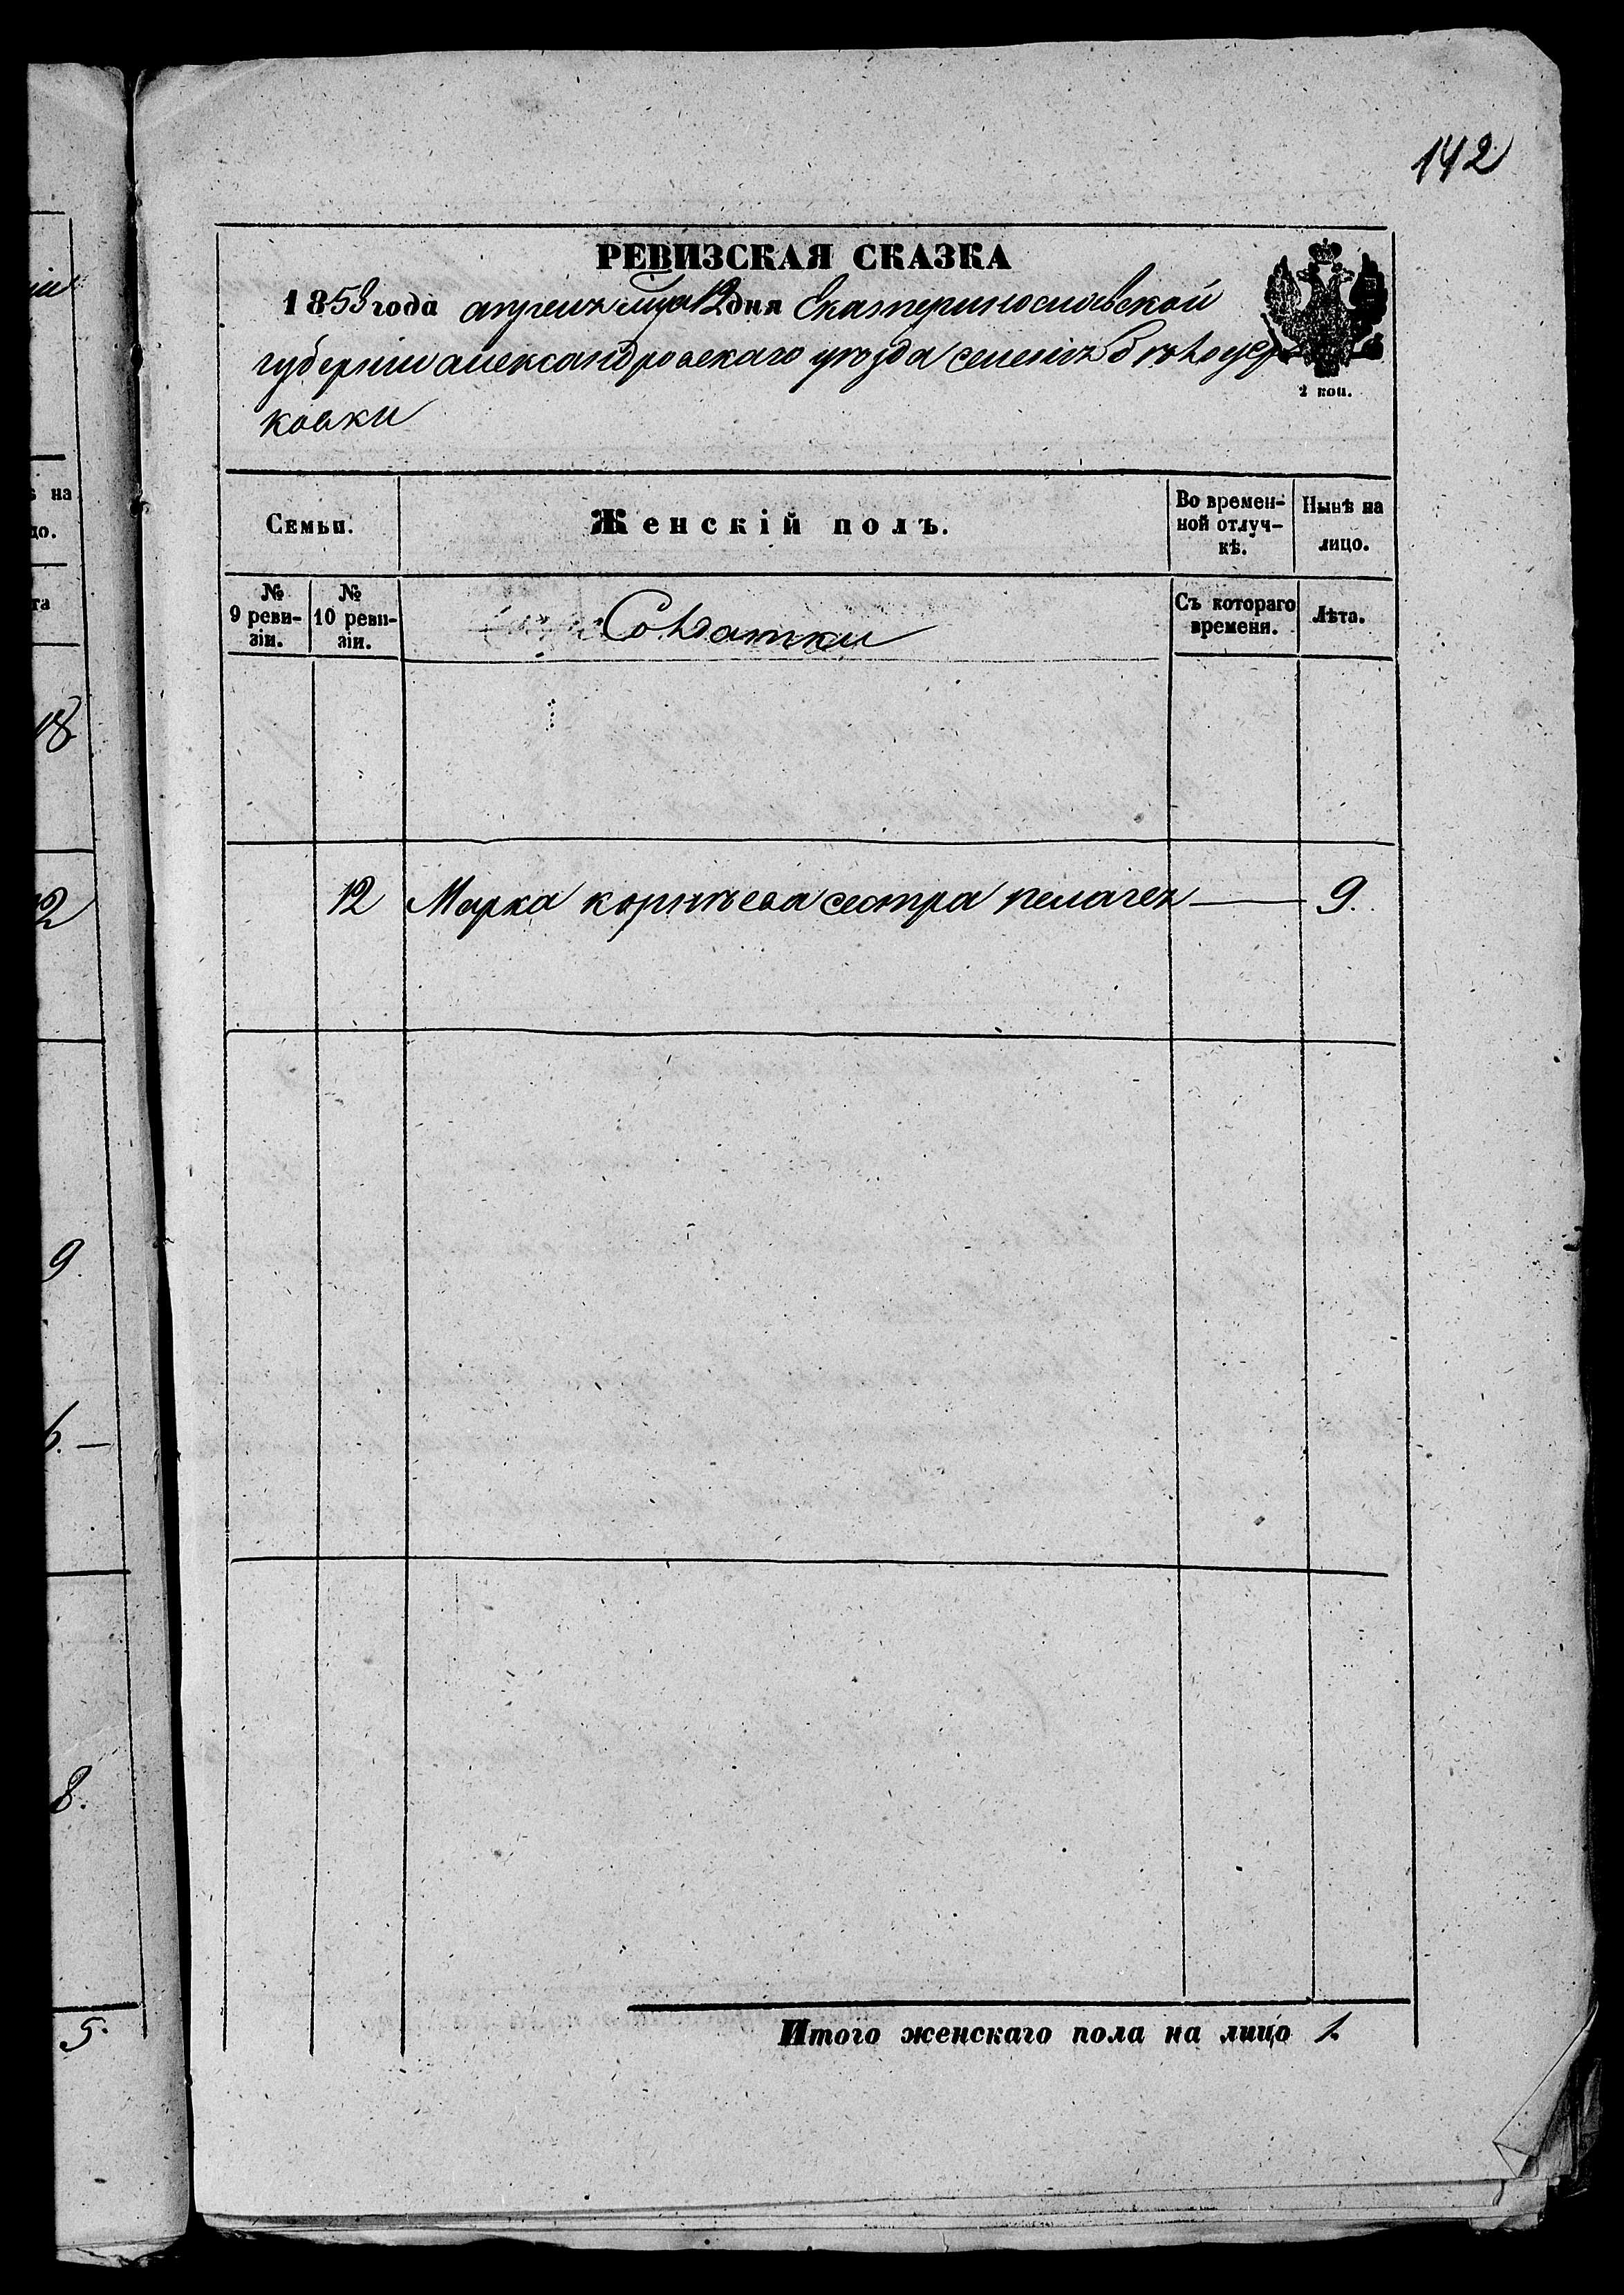 142
РЕВИЗСКАЯ СКАЗКА
1858 года апреля мца 12 дня Екатеринославской
губерніи александровскаго уѣзда селенія Бѣлоцер
ковки
2 коп.
Семьи.
Женскій полъ.
Во времен-
ной отлуч-
кѣ.
Нынѣ на
лицо.
№
9 реви-
зіи.
№
10 реви-
зіи.
Солдатки
Съ котораго
времени.
Лѣта.
12 Марка корнѣева сестра пелагея — 9.
Итого женскаго пола на лицо 1.
на
до.
та
18
2
9.
6. —
8.
5.